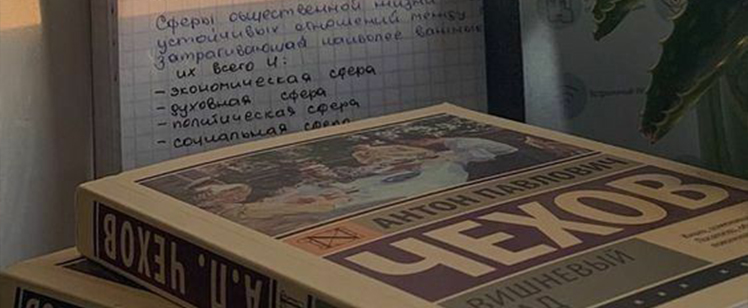 Сферы общественной жизни
устойчивых отношений между
Затрагивающая наиболее важные
их всего 4:
- экономическая сфера
- духовная сфера
- политическая сфера
- социальная сфера
АНТОН ПАВЛОВИЧ
ЧЕХОВ
ВИШНЕВЫЙ
А.П. ЧЕХОВ